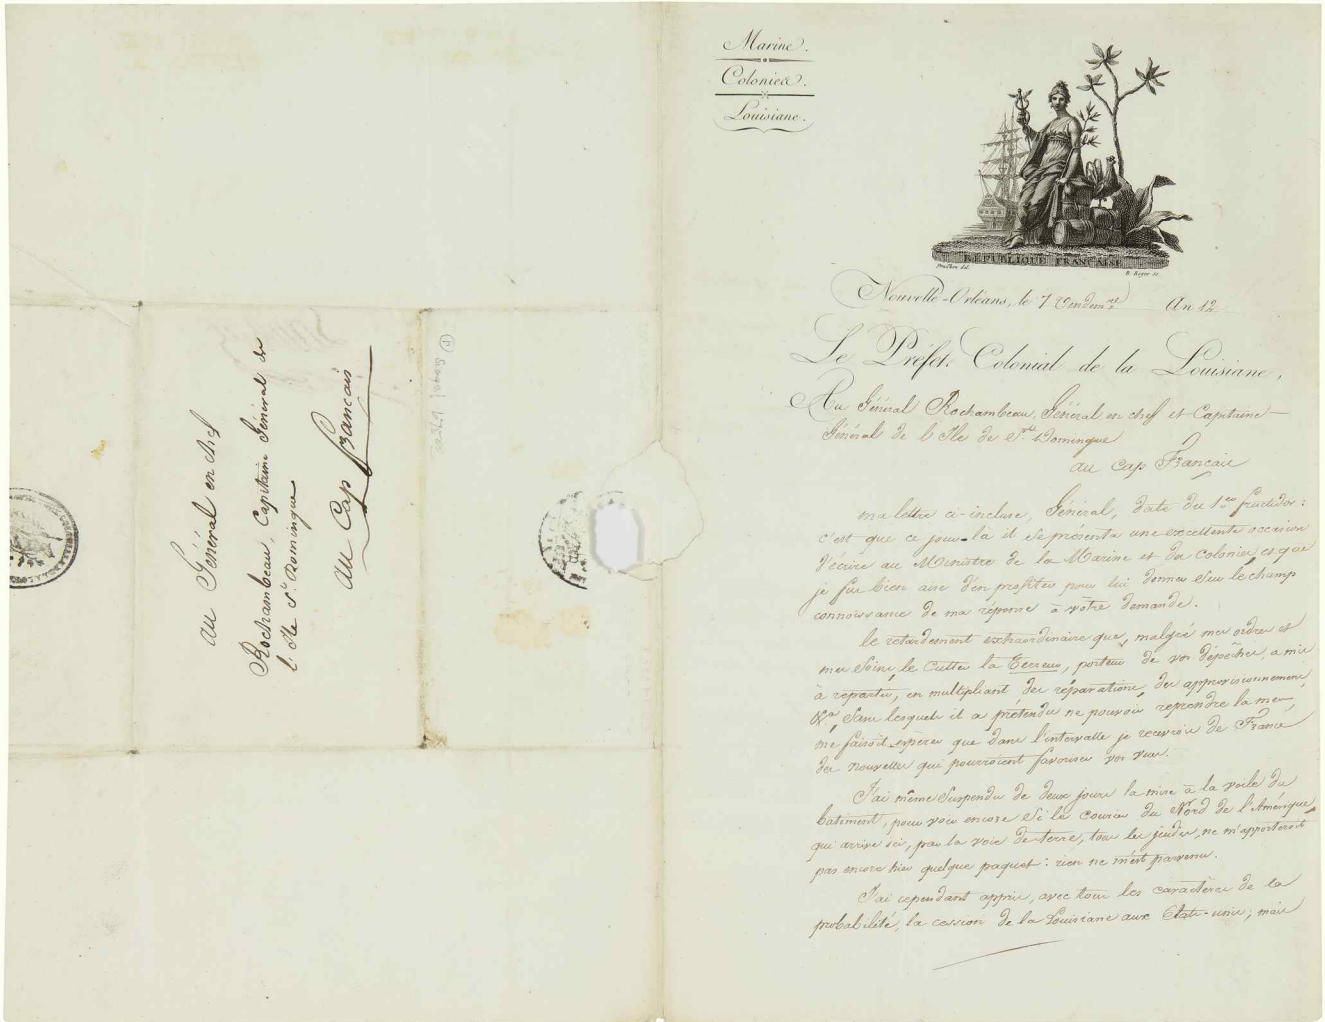 au Général en chef
Rochambeau, Capitaine Général de
l'Ile St. Domingue
au Cap français
Marine.
Colonies.
Louisiane.
RÉPUBLIQUE FRANÇAISE
Prudhon del.
B. Roger sc.
Nouvelle-Orléans, le 7 Vendemre An 12
Le Préfet Colonial de la Louisiane,
Au Général Rochambeau, Général en chef et Capitaine-
Général de l'Ile de Ste Domingue
au Cap Français
ma lettre ci-incluse, Général, date du 1er fructidor:
c'est que ce jour-là il se présenta une excellente occasion
d'écrire au Ministre de la Marine et des Colonies, et que
je fus bien aise d'en profiter pour lui donner sur le champ
connoissance de ma réponse à votre demande.
le retardement extraordinaire que, malgré mes ordres et
mes soins, le Cutter la Terreur, porteur de vos dépêches, a mis
à repartir, en multipliant des réparations, des approvisionnemens
&a, sans lesquels il a prétendu ne pouvoir reprendre la mer,
me faisoit espérer que dans l'intervalle je recevrois de France
des nouvelles qui pourroient favoriser vos vues.
J'ai même suspendu de deux jours la mise à la voile du
batiment, pour voir encore si le courier du Nord de l'Amérique,
qui arrive ici, par la voie de terre, tous les jeudis, ne m'apporteroit
pas encore hier quelque paquet: rien ne m'est parvenu.
J'ai cependant appris, avec tous les caractères de la
probabilité, la cession de la Louisiane aux Etats-unis; mais